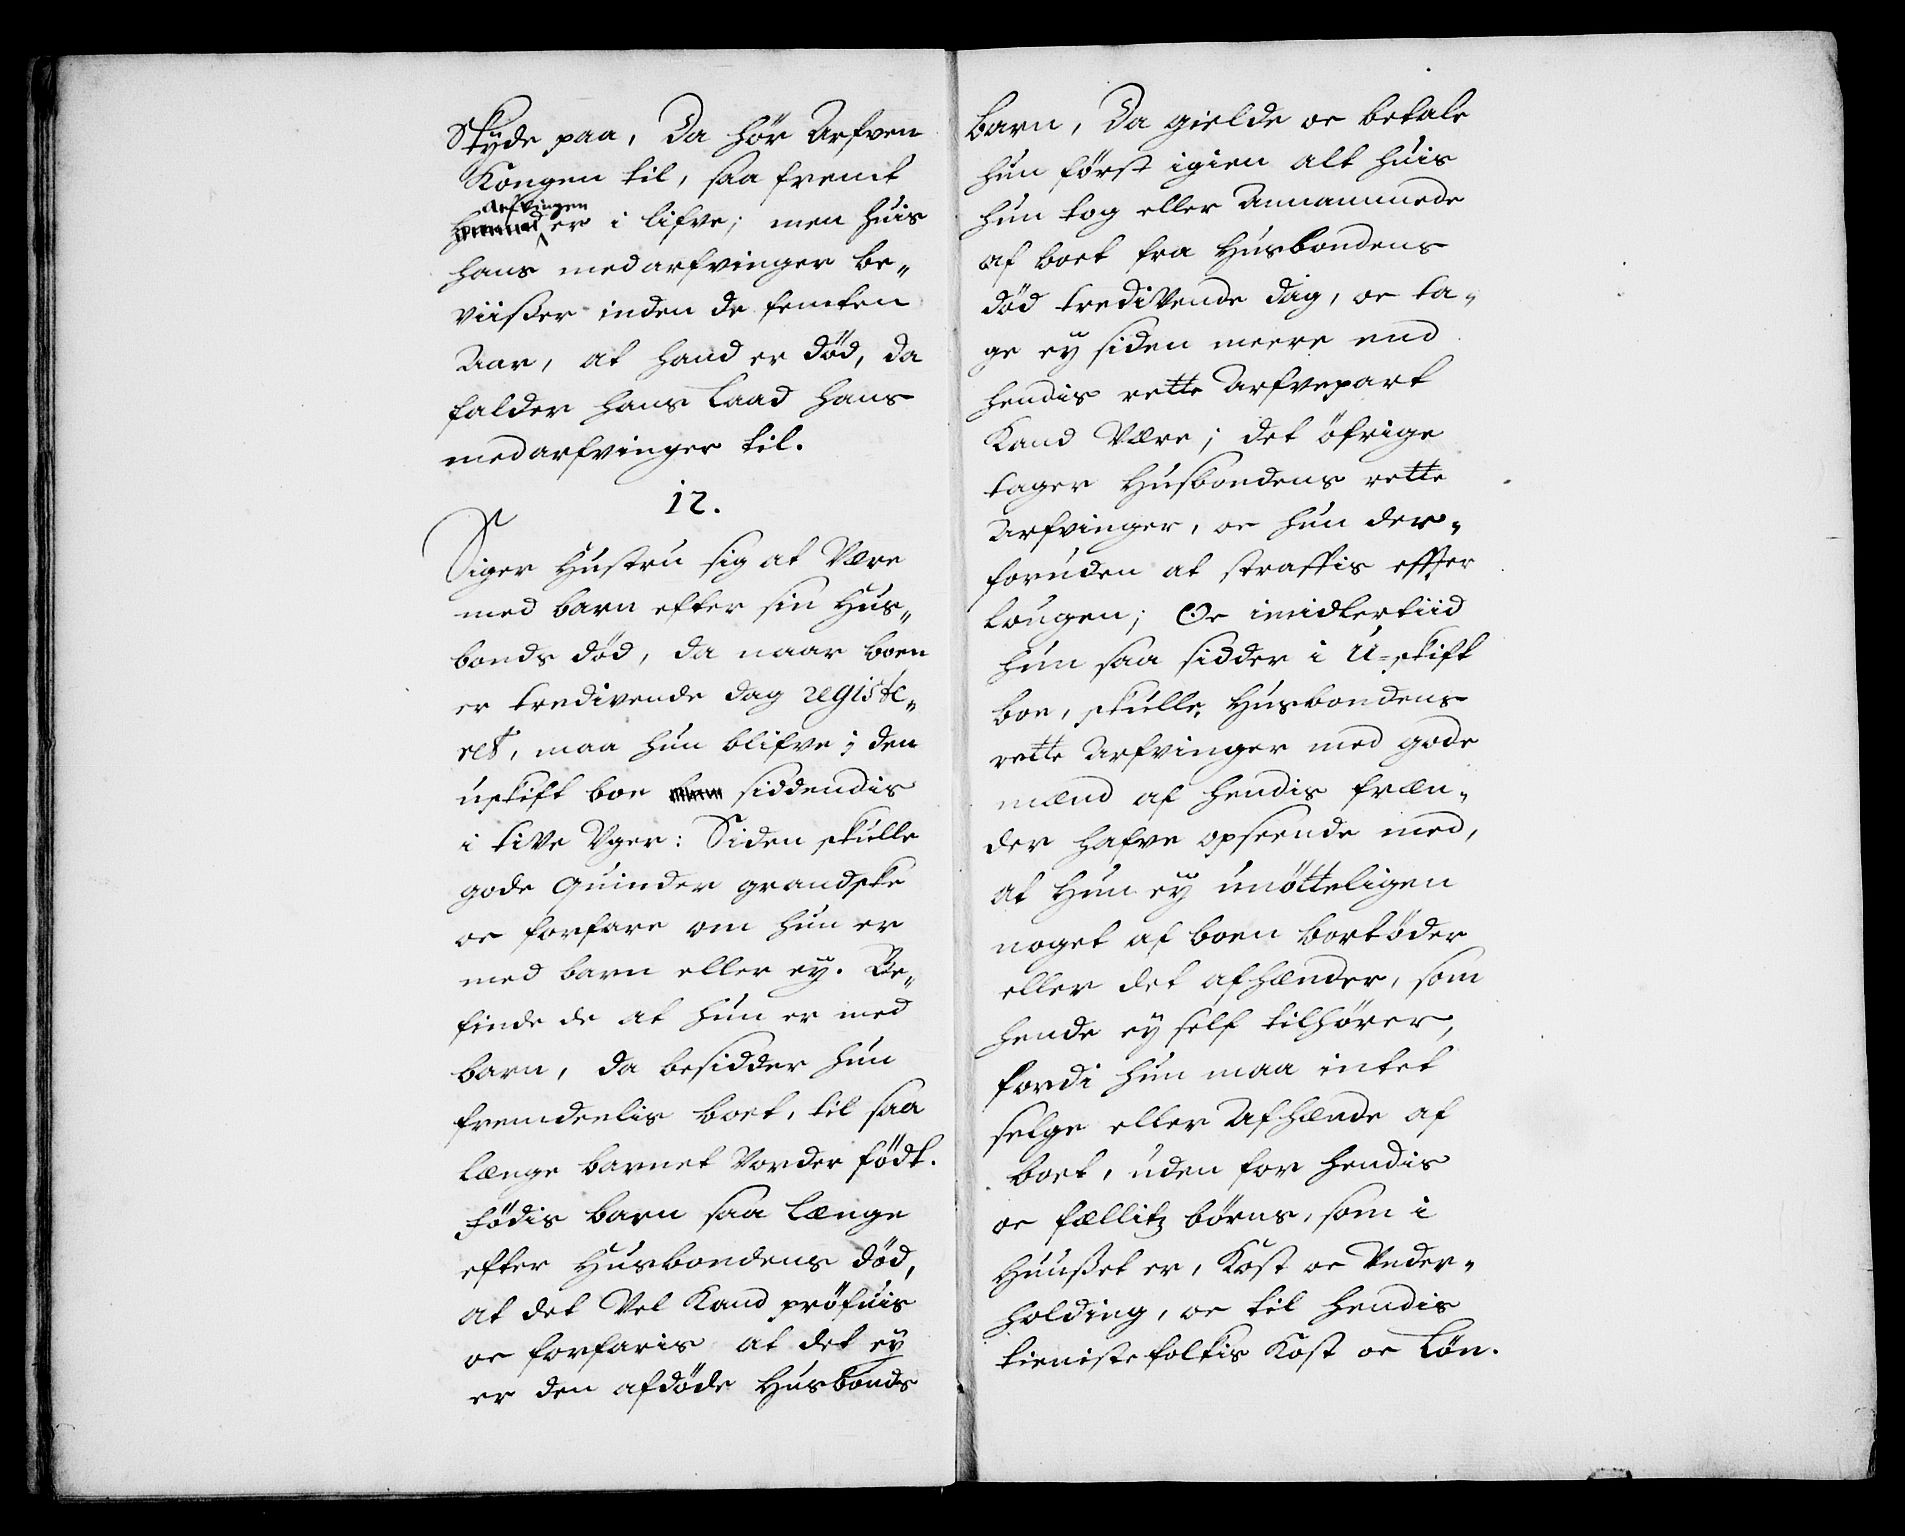 Skyde paa, Da hør Arfven
Kongen til, saa fremt
Arfvingen
er i lifve; men huis
hans medarfvinger be„
viißer inden de femten
Aar, at hand er død, da
falder hans laad hans
medarfvinger til.
12.
Siger Hustru sig at Være
med barn efter sin Hus„
bonds død, da naar boen
er tredivende dag registe„
ret, maa hun blifve i den
uskift boe siddendis
i tive Vger: Siden skulle
gode Quinder grandske
oc forfare om hun er
med barn eller ey. Be„
finde de at hun er med
barn, da besidder hun
fremdeelis boet, til saa
længe barnet Vorder født.
Fødis barn saa længe
efter Husbondens død,
at det Vel Kand prøfuis
oc forfaris at det ey
er den afdøde Husbonds
barn, Da gielde oc betale
hun først igien alt huis
hun tog eller Annammede
af boet fra Husbondens
død tredivende dag, oc ta„
ge ey siden meere end
hendis rette Arfvepart
Kand Være; det øfrige
tager Husbondens rette
Arfvinger, oc hun der„
foruden at straffis effter
Lougen; Oc imidlertiid
hun saa sidder i U-skift
boe, skulle Husbondens
rette Arfvinger med gode
mænd af hendis fræn„
der hafve opseende med,
at Hun ey unøtteligen
noget af boen bortøder
eller det afhænder, som
hende ey self tilhører,
fordi hun maa intet
selge eller Afhænde af
boet, uden for hendis
oc fællitz børns, som i
Huußet er, Kost oc Under„
holding, oc til hendis
tienistefolkis Kost oc Løn.